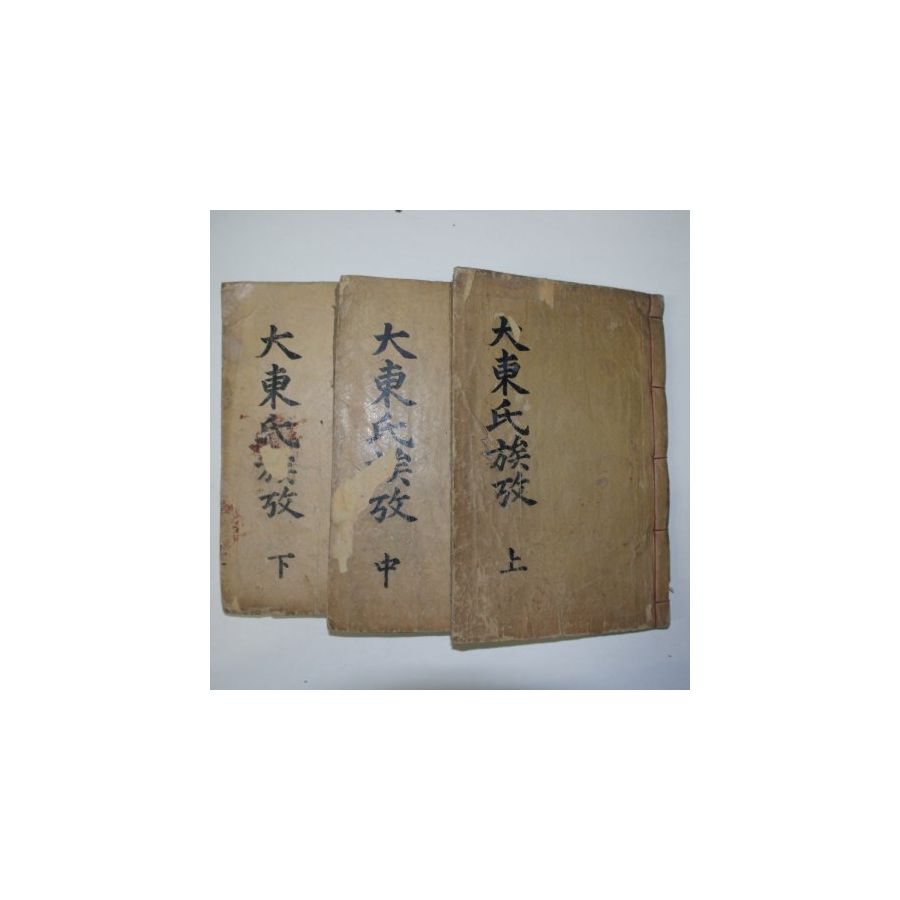 大東氏族攷
上
大東氏族攷
中
大東氏族攷
下